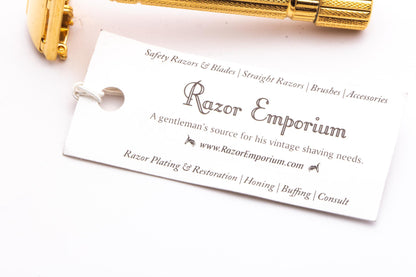 Safety Razors & Blades | Straight Razors | Brushes | Accessories
Razor Emporium
A gentleman's source for his vintage shaving needs.
www.RazorEmporium.com
Razor Plating & Restoration | Honing | Buffing | Consult